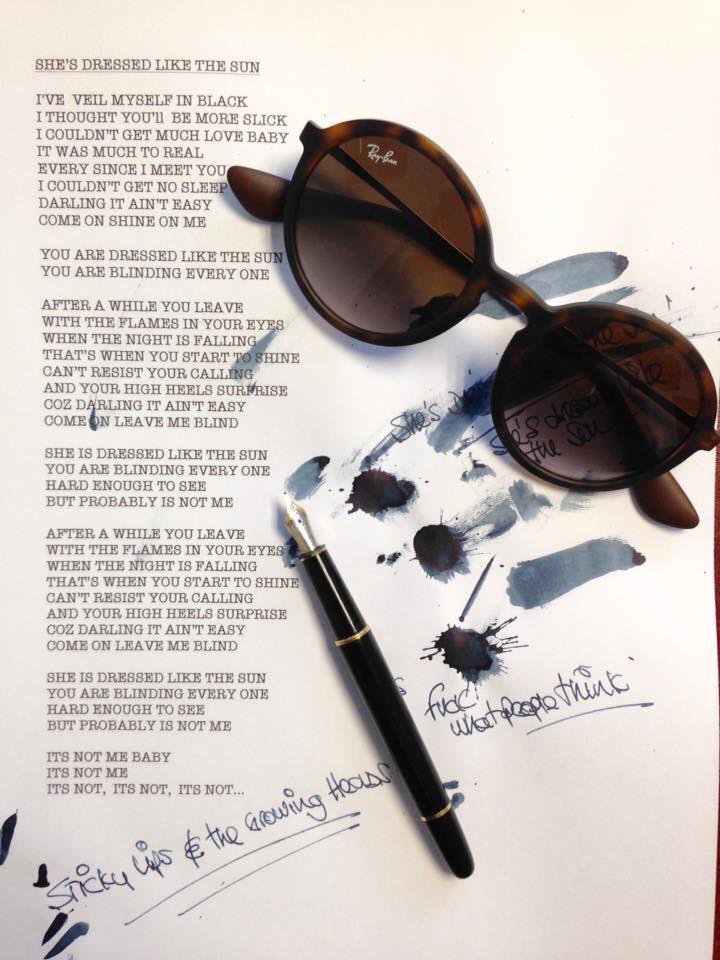 SHE'S DRESSED LIKE THE SUN
I'VE VEIL MYSELF IN BLACK
I THOUGHT YOU'll BE MORE SLICK
I COULDN'T GET MUCH LOVE BABY
IT WAS MUCH TO REAL
EVERY SINCE I MEET YOU
I COULDN'T GET NO SLEEP
DARLING IT AIN'T EASY
COME ON SHINE ON ME
YOU ARE DRESSED LIKE THE SUN
YOU ARE BLINDING EVERY ONE
AFTER A WHILE YOU LEAVE
WITH THE FLAMES IN YOUR EYES
WHEN THE NIGHT IS FALLING
THAT'S WHEN YOU START TO SHINE
CAN'T RESIST YOUR CALLING
AND YOUR HIGH HEELS SURPRISE
COZ DARLING IT AIN'T EASY
COME ON LEAVE ME BLIND
SHE IS DRESSED LIKE THE SUN
YOU ARE BLINDING EVERY ONE
HARD ENOUGH TO SEE
BUT PROBABLY IS NOT ME
AFTER A WHILE YOU LEAVE
WITH THE FLAMES IN YOUR EYES
WHEN THE NIGHT IS FALLING
THAT'S WHEN YOU START TO SHINE
CAN'T RESIST YOUR CALLING
AND YOUR HIGH HEELS SURPRISE
COZ DARLING IT AIN'T EASY
COME ON LEAVE ME BLIND
SHE IS DRESSED LIKE THE SUN
YOU ARE BLINDING EVERY ONE
HARD ENOUGH TO SEE
BUT PROBABLY IS NOT ME
ITS NOT ME BABY
ITS NOT ME
ITS NOT, ITS NOT, ITS NOT...
Ray-Ban
She's
She's
the sun
Fuck
what people think
Sticky lips & the Growing